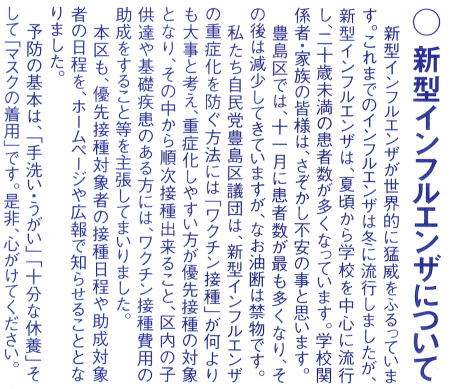 ○ 新型インフルエンザについて
　新型インフルエンザが世界的に猛威をふるっていま
す。これまでのインフルエンザは冬に流行しましたが、
新型インフルエンザは、夏頃から学校を中心に流行
し、二十歳未満の患者数が多くなっています。学校関
係者・家族の皆様は、さぞかし不安の事と思います。
　豊島区では、十一月に患者数が最も多くなり、そ
の後は減少してきていますが、なお油断は禁物です。
　私たち自民党豊島区議団は、新型インフルエンザ
の重症化を防ぐ方法には「ワクチン接種」が何より
も大事と考え、重症化しやすい方が優先接種の対象
となり、その中から順次接種出来ること、区内の子
供達や基礎疾患のある方には、ワクチン接種費用の
助成をすること等を主張してまいりました。
　本区も、優先接種対象者の接種日程や助成対象
者の日程を、ホームページや広報で知らせることとな
りました。
　予防の基本は、「手洗い・うがい」「十分な休養」そ
して「マスクの着用」です。是非、心がけてください。